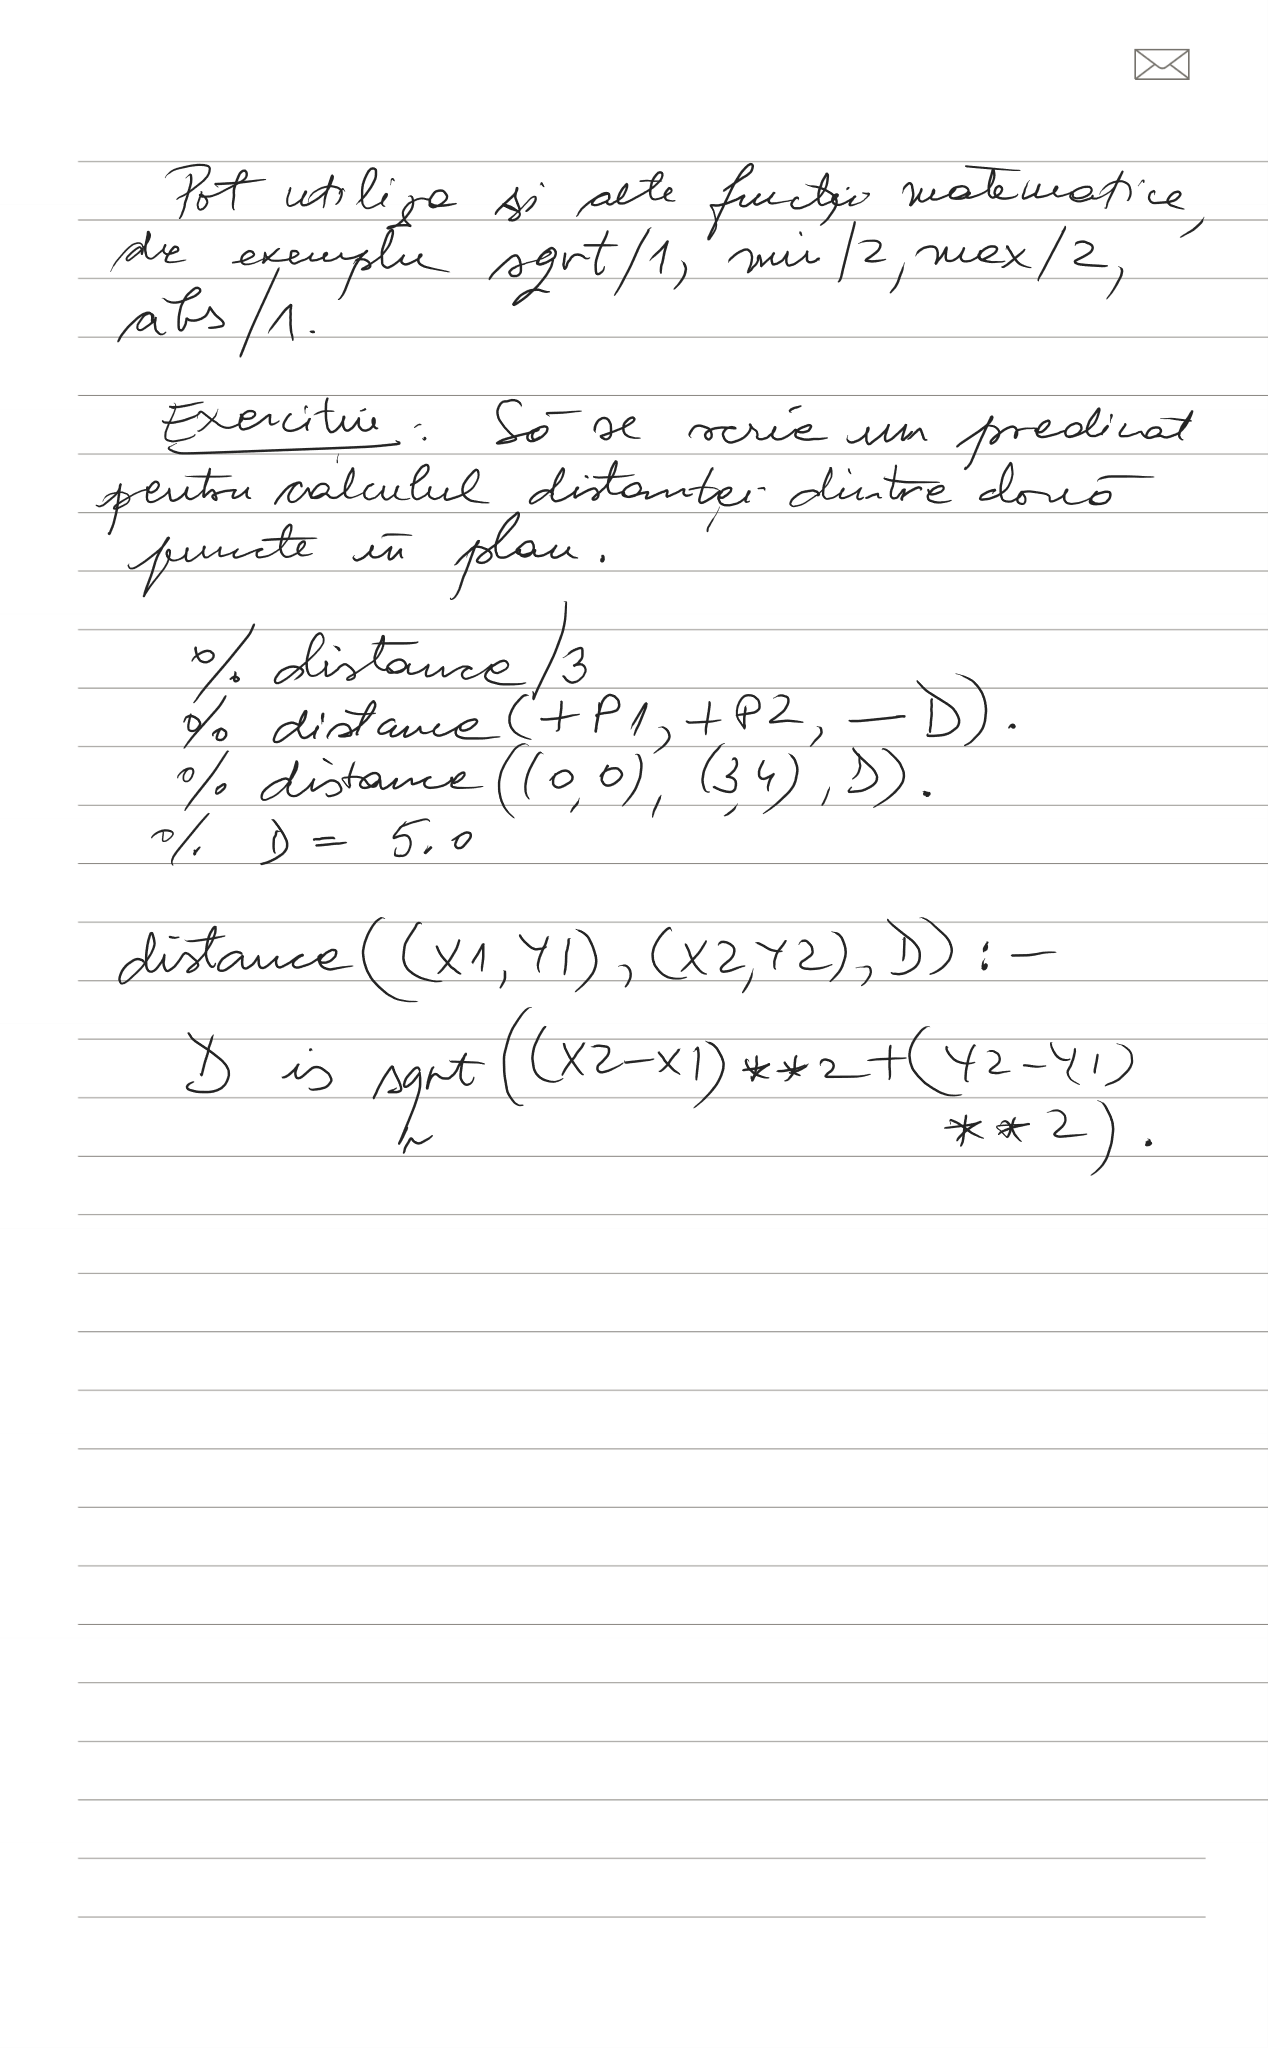 Pot utiliza și alte funcții matematice,
de exemplu sqrt/1, min/2, max/2,
abs/1.
Exercițiu: Să se scrie un predicat
pentru calculul distanței dintre două
puncte în plan.
% distance/3
% distance(+P1, +P2, -D).
% distance((0,0), (3,4), D).
% D = 5.0
distance((X1,Y1), (X2,Y2), D) :-
D is sqrt((X2-X1)**2+(Y2-Y1)
**2).